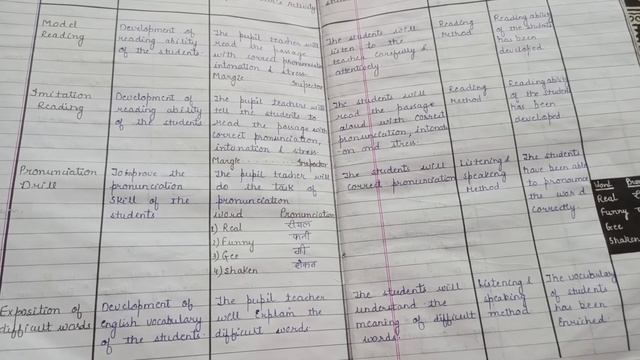 's Activity
Model
Reading
Development of
reading ability
of the students
The pupil teacher will
read the passage
with correct pronunciation
intonation & stress.
Margie Inspector
The students will
listen to the
teacher carefully &
attentively
Reading
Method
Reading ability
of the students
has been
developed
Imitation
Reading
Development of
reading ability
of the students
The pupil teacher will
tell the students to
read the passage with
correct pronunciation,
intonation & stress
Margie ...... Inspector
The students will
read the passage
aloud with correct
pronunciation, intonati
on and stress.
Reading
Method
Reading ability
of the students
has been
developed
Pronunciation
Drill
To improve the
pronunciation
skill of the
students
The pupil teacher will
do the task of
pronunciation
word Pronunciation
1) Real रीयल
2) Funny फनी
3) Gee जी
4) Shaken शेकन
The students will
correct pronunciation
Listening &
speaking
Method
The students
have been able
to pronounce
the word
correctly.
Word
Real
Funny
Gee
Shaken
Exposition of
difficult words
Development of
English vocabulary
of the students
The pupil teacher
will explain the
difficult words
The students will
understand the
meaning of difficult
words
Listening &
speaking
method
The vocabulary
of students
has been
Enriched.